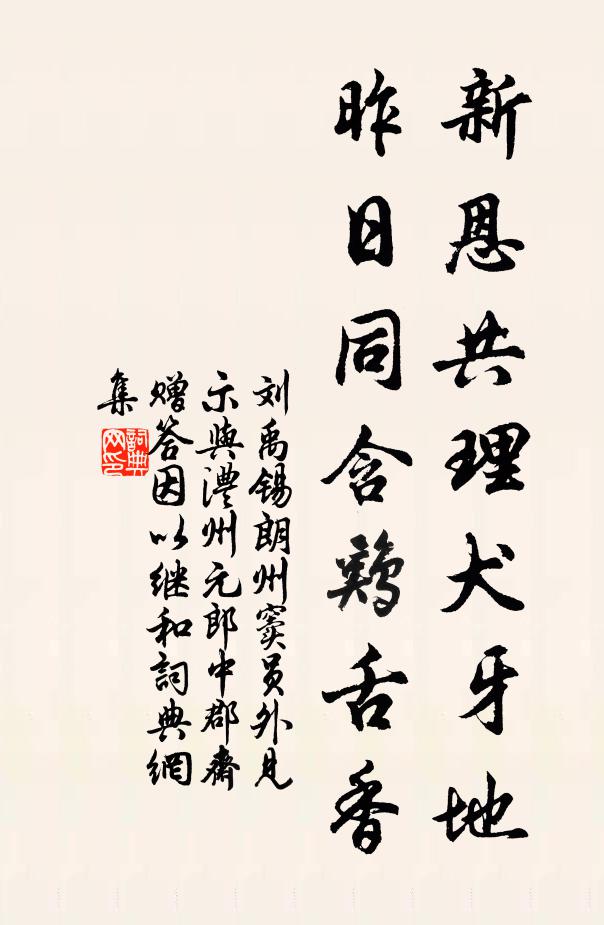 新恩共理犬牙地
昨日同含鷄舌香
刘禹锡朗州窦员外見
示與澧州元郎中郡齋
贈答因以继和詞典網
集
詞典
网